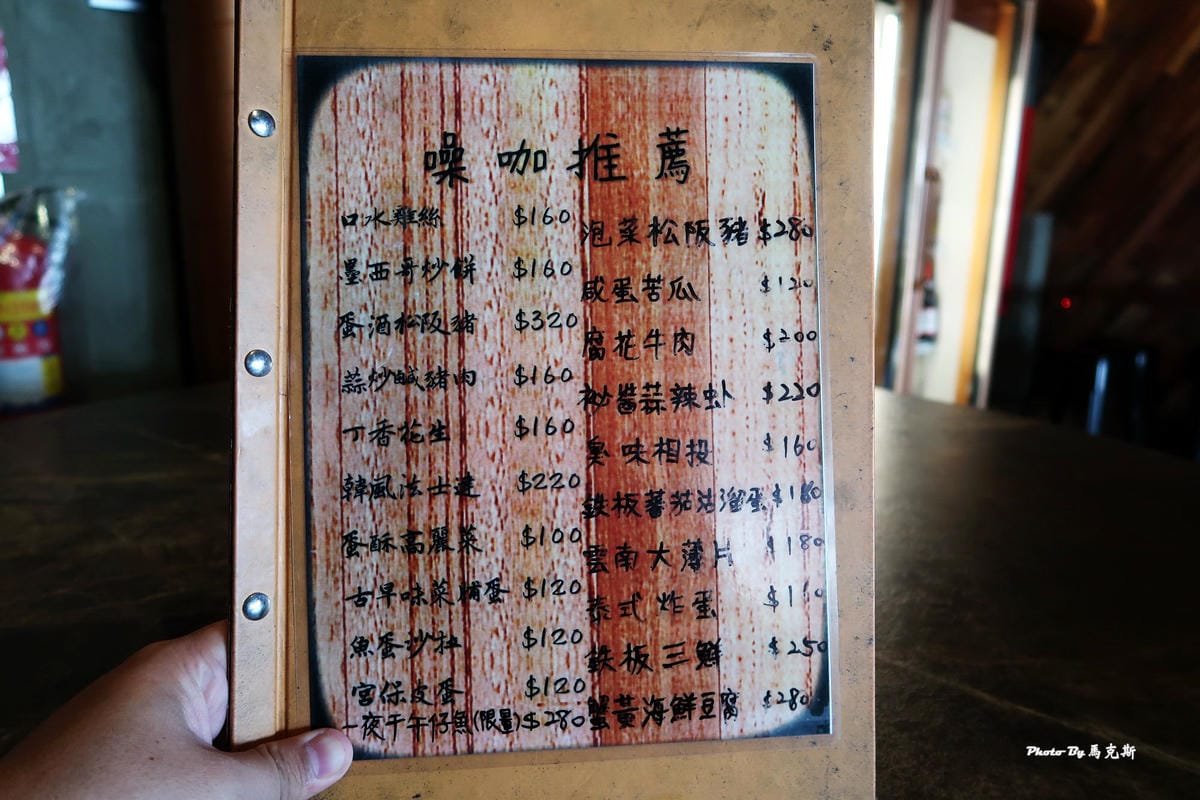 噪咖推薦
口水雞絲 $160
墨西哥炒餅 $160
蛋酒松阪豬 $320
蒜炒鹹豬肉 $160
丁香花生 $160
韓風法士達 $220
蛋酥高麗菜 $100
古早味菜脯蛋 $120
魚蛋沙拉 $120
宮保皮蛋 $120
一夜干午仔魚(限量) $280
泡菜松阪豬 $280
咸蛋苦瓜 $120
腐花牛肉 $200
秘醬蒜辣虾 $220
臭味相投 $160
鉄板蕃茄油溜蛋 $180
雲南大薄片 $180
泰式炸蛋
鉄板三鮮 $250
蟹黃海鮮豆腐 $280
Photo By 馬克斯